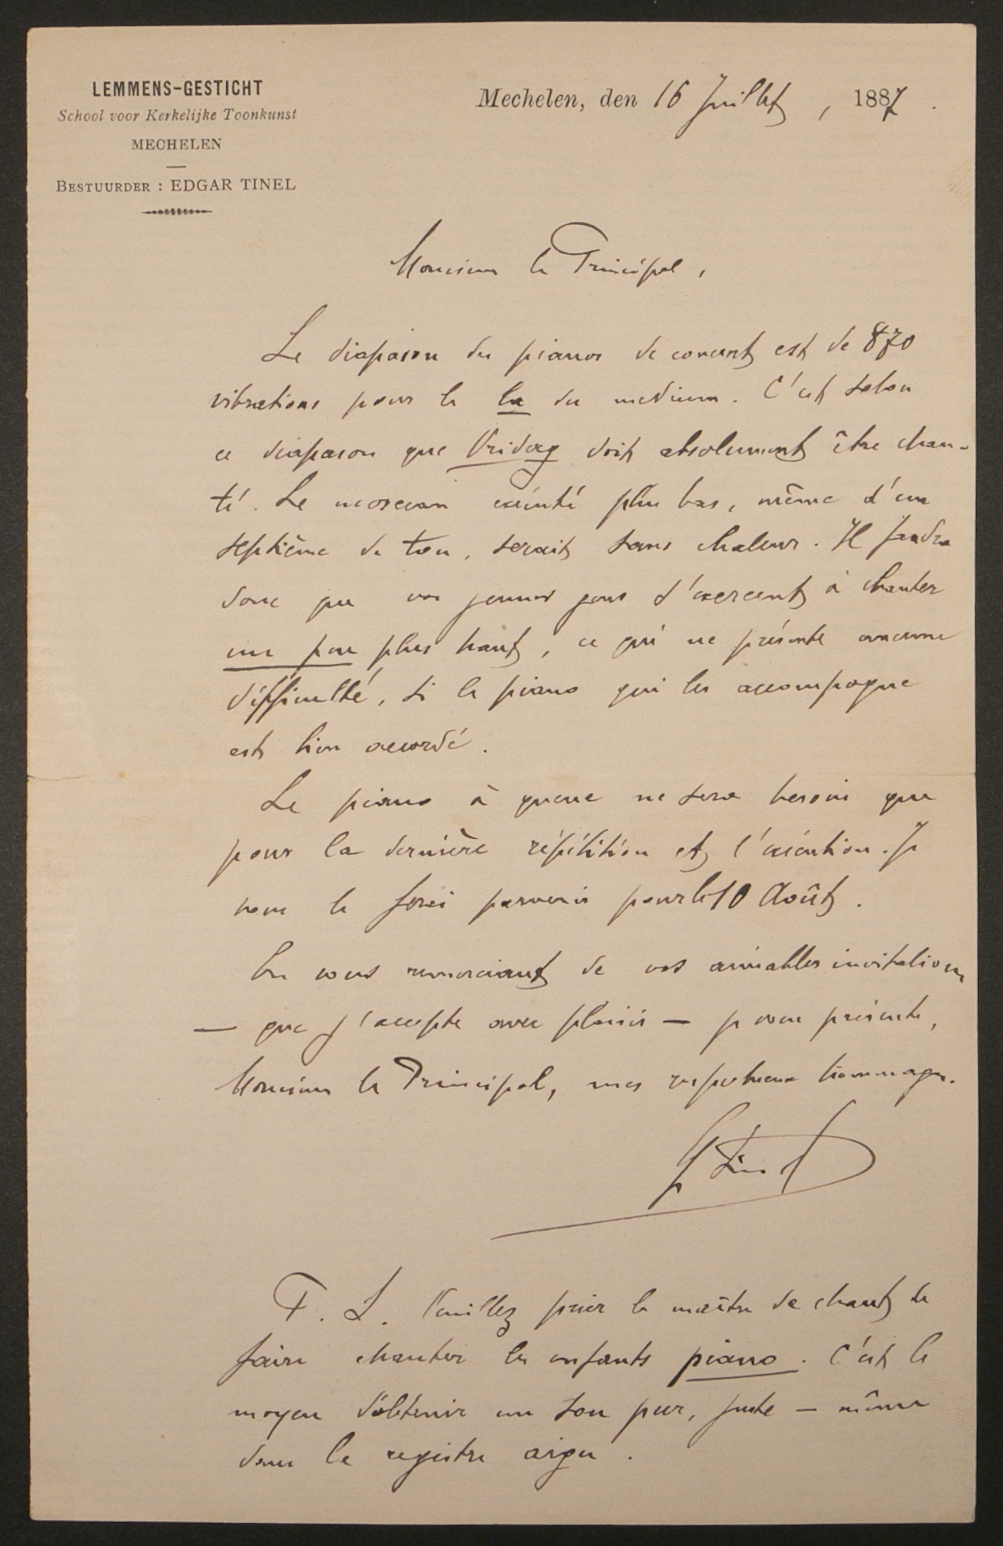 LEMMENS-GESTICHT
School voor Kerkelijke Toonkunst
MECHELEN
BESTUURDER : EDGAR TINEL
Mechelen, den 16 Juillet, 1887.
Monsieur le Principal,
Le diapason des pianos de concert est de 870
vibrations pour le la du medium. C'est selon
ce diapason que doit absolument être chan-
té. Le morceau exécuté plus bas, même d'un
septième de ton, serait sans chaleur. Il faudra
donc que vos jeunes gens s'exercent à chanter
un peu plus haut, ce qui ne présente aucune
difficulté, si le piano qui les accompagne
est bien accordé.
Le piano à queue ne sera besoin que
pour la dernière répétition et l'exécution. Je
vous le ferai parvenir pour le 10 Août.
En vous remerciant de vos aimables invitations
— que j'accepte avec plaisir — je vous présente,
Monsieur le Principal, mes respectueux hommages.
E Tinel
P. S. Veuillez prier le maître de chant de
faire chanter les enfants piano. C'est le
moyen d'obtenir un son pur, juste — même
dans le registre aigu.